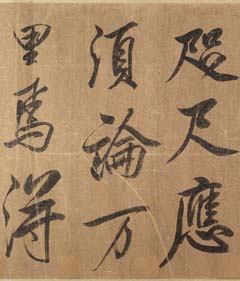 咫尺應
須論万
里焉得